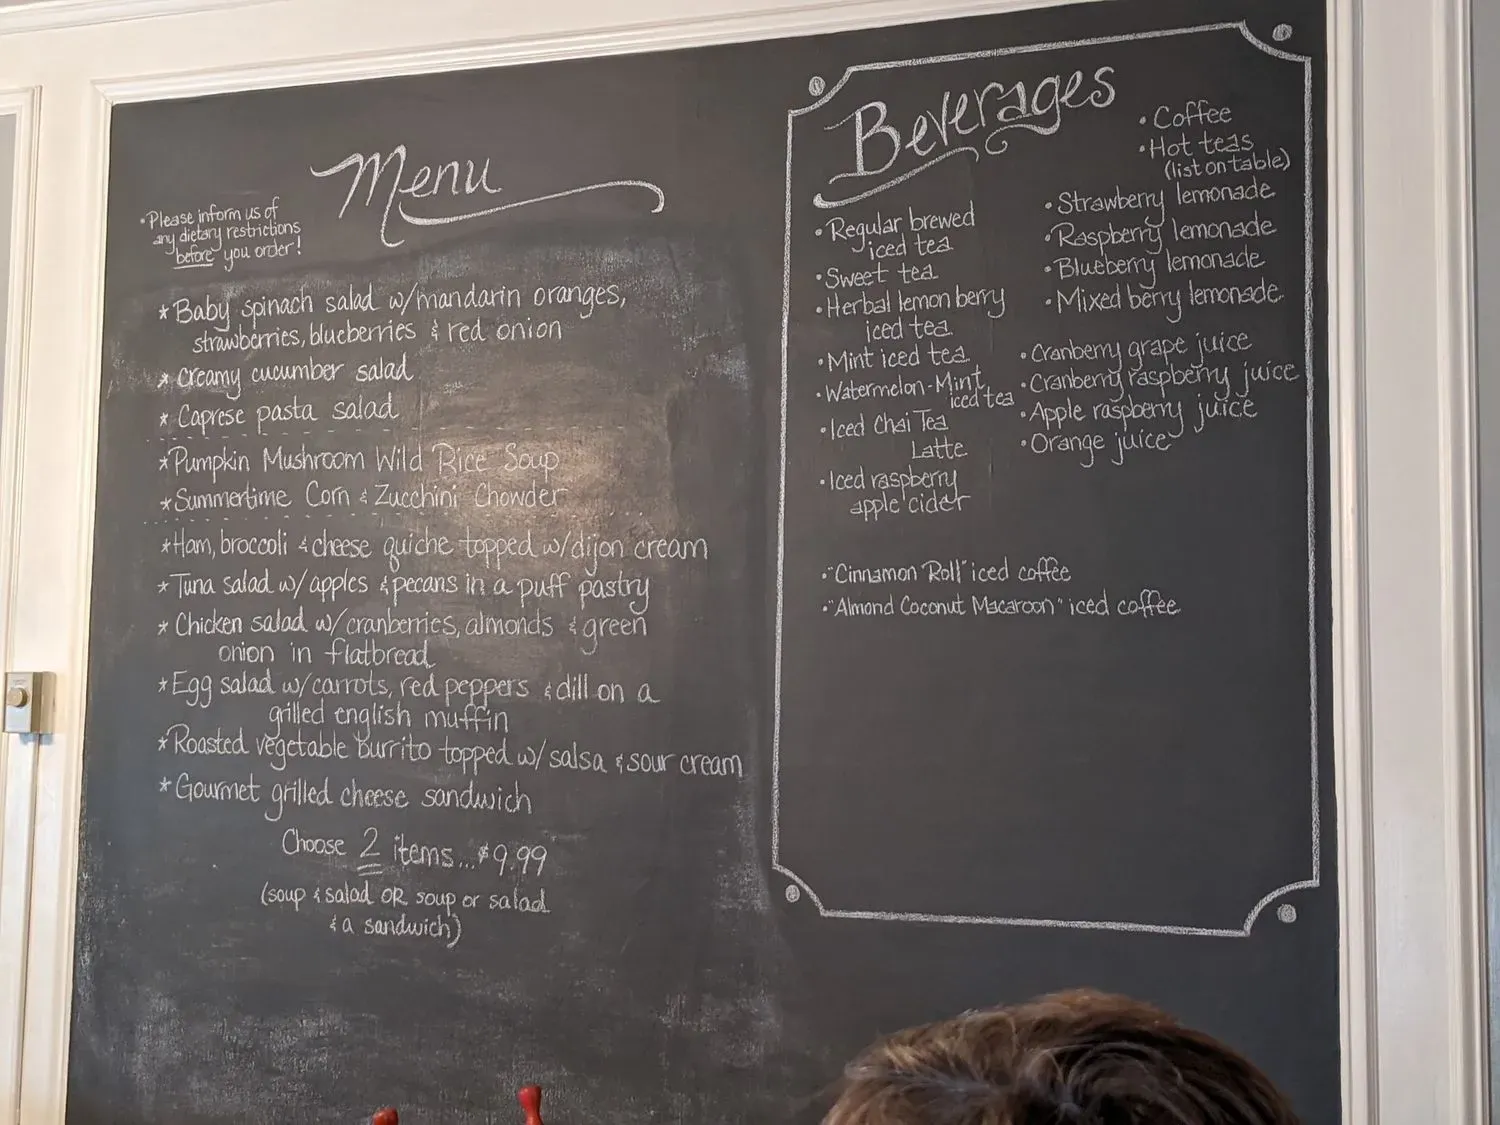 Menu
• Please inform us of
any dietary restrictions
before you order!
* Baby spinach salad w/mandarin oranges,
strawberries, blueberries & red onion
* Creamy cucumber salad
* Caprese pasta salad
* Pumpkin Mushroom Wild Rice Soup
* Summertime Corn & Zucchini Chowder
* Ham, broccoli & cheese quiche topped w/dijon cream
* Tuna salad w/apples & pecans in a puff pastry
* Chicken salad w/cranberries, almonds & green
onion in flatbread
* Egg salad w/carrots, red peppers & dill on a
grilled english muffin
* Roasted vegetable burrito topped w/salsa & sour cream
* Gourmet grilled cheese sandwich
Choose 2 items...$9.99
(soup & salad OR soup or salad
& a sandwich)
Beverages
• Regular brewed
iced tea
• Sweet tea
• Herbal lemon berry
iced tea
• Mint iced tea
• Watermelon-Mint
iced tea
• Iced Chai Tea
Latte
• Iced raspberry
apple cider
• Coffee
• Hot teas
(list on table)
• Strawberry lemonade
• Raspberry lemonade
• Blueberry lemonade
• Mixed berry lemonade
• Cranberry grape juice
• Cranberry raspberry juice
• Apple raspberry juice
• Orange juice
• "Cinnamon Roll" iced coffee
• "Almond Coconut Macaroon" iced coffee